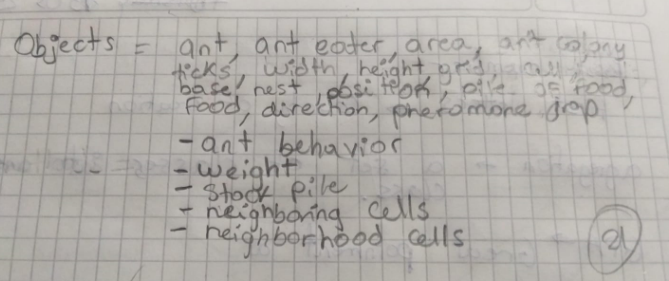 Objects = ant, ant eater, area, ant colony
ticks, width, height grid, cell,
base, nest, position, pile of food,
food, direction, pheromone drop
- ant behavior
- weight
- stock pile
- neighboring cells
- neighborhood cells
21